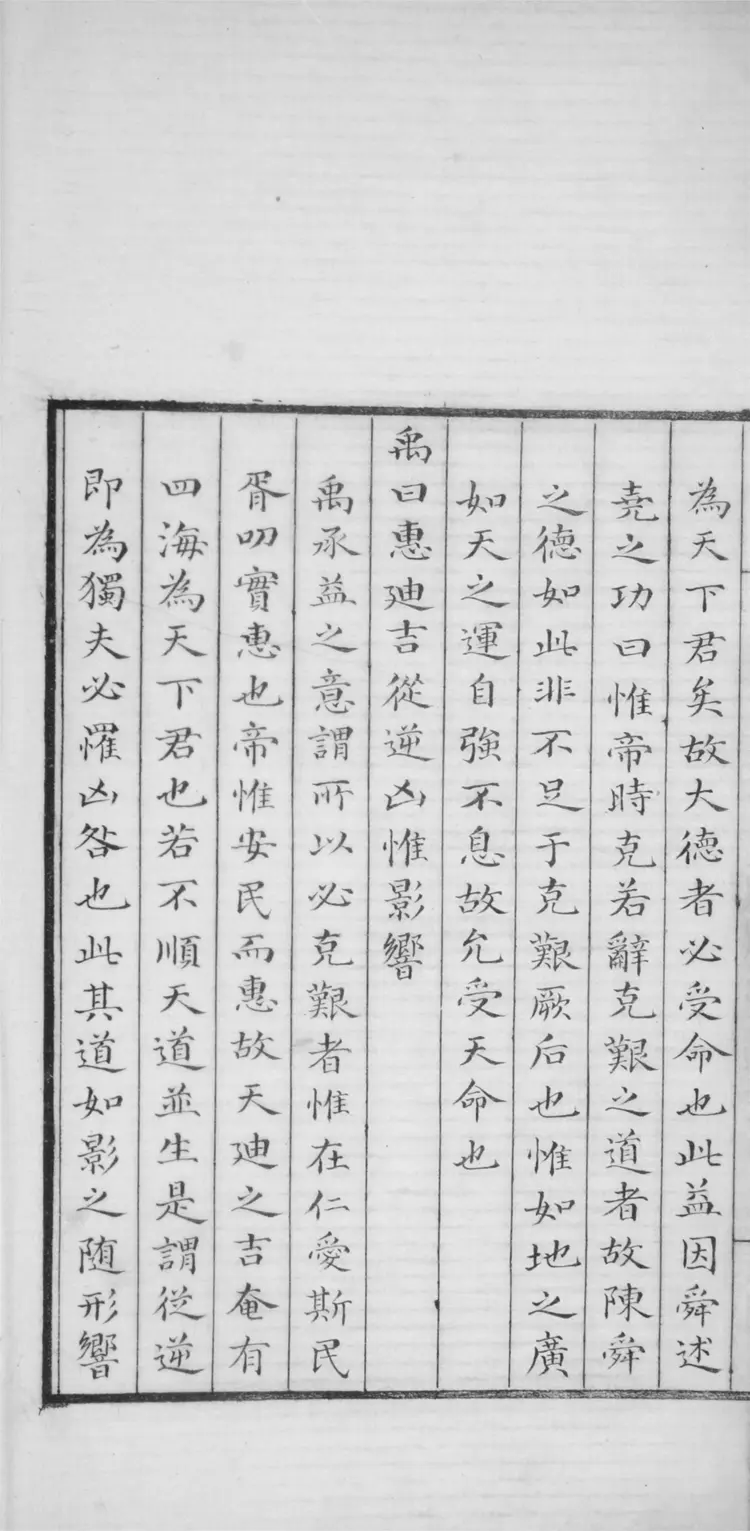 為天下君矣故大德者必受命也此益因舜述
堯之功曰惟帝時克若辭克艱之道者故陳舜
之德如此非不足于克艱厥后也惟如地之廣
如天之運自強不息故允受天命也
禹曰惠迪吉從逆凶惟影響
禹承益之意謂所以必克艱者惟在仁愛斯民
胥叨實惠也帝惟安民而惠故天迪之吉奄有
四海為天下君也若不順天道並生是謂從逆
即為獨夫必罹凶咎也此其道如影之随形響